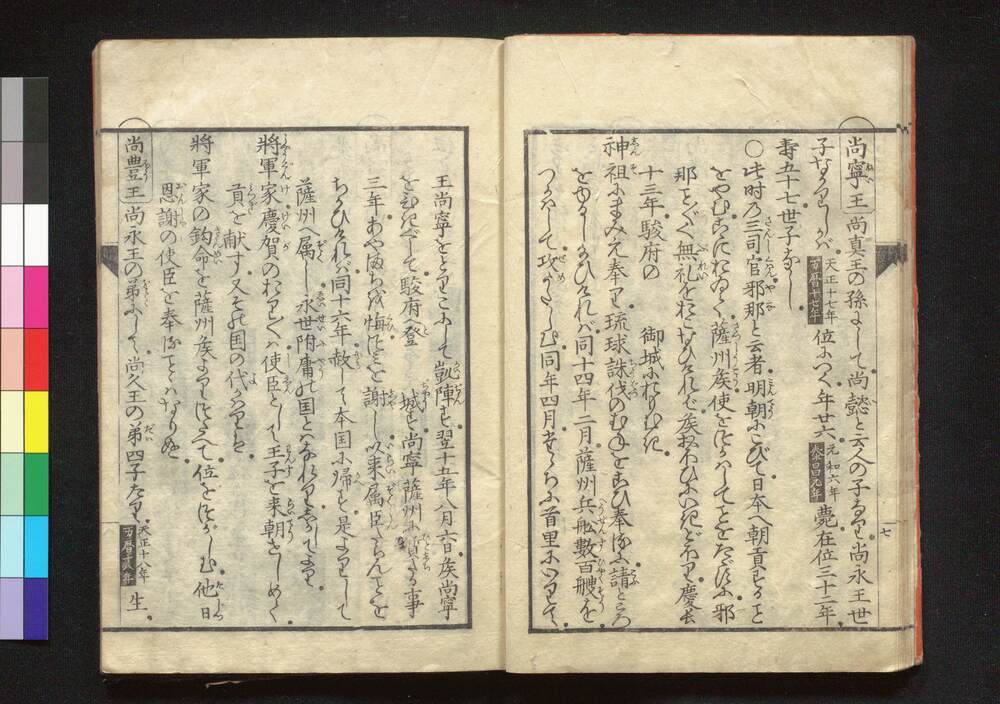 尚寧王尚真王の孫にして尚懿と云人の子なり尚永王世
子なかりしかバ天正十七年万暦十七年位につく年廿六元和六年泰昌元年薨在位三十二年
寿五十七世子なし
〇此時乃三司官邪那と云者明朝にこびて日本へ朝貢する事
をやむこゝにおゐて薩州侯使をつかハしてことをたゞすに邪
那とかく無礼をおこなひけれバ侯おほひにいきどほり慶長
十三年駿府の　御城におもむき
神祖にまみえ奉り琉球誅伐のむねをこひ奉るに請ところ
をゆるし給ひけれバ同十四年二月薩州兵舩数百艘を
つかハして攻めたゝかハしむ同年四月すゝんで首里にいりて
王尚寧をとりこにして凱陣す翌十五年八月六日侯尚寧
をともなひて駿府へ登城す尚寧薩州に質たる事
三年あやまちを悔つミを謝し以来属臣たらんことを
ちかひけれバ同十六年赦して本国に帰す是よりして
薩州へ属し永世附庸の国とハなれりしかりてより
貢を献す又その国の代かりに
將軍家慶賀のおりにハ使臣として王子を来朝せしめ
將軍家の鈞命を薩州侯よりつたへて位をつがしむ他日
恩謝の使臣を奉ることゝハなりぬ
尚豊王尚永王の弟にして尚久王の第四子なり天正十八年万暦十八年生
七